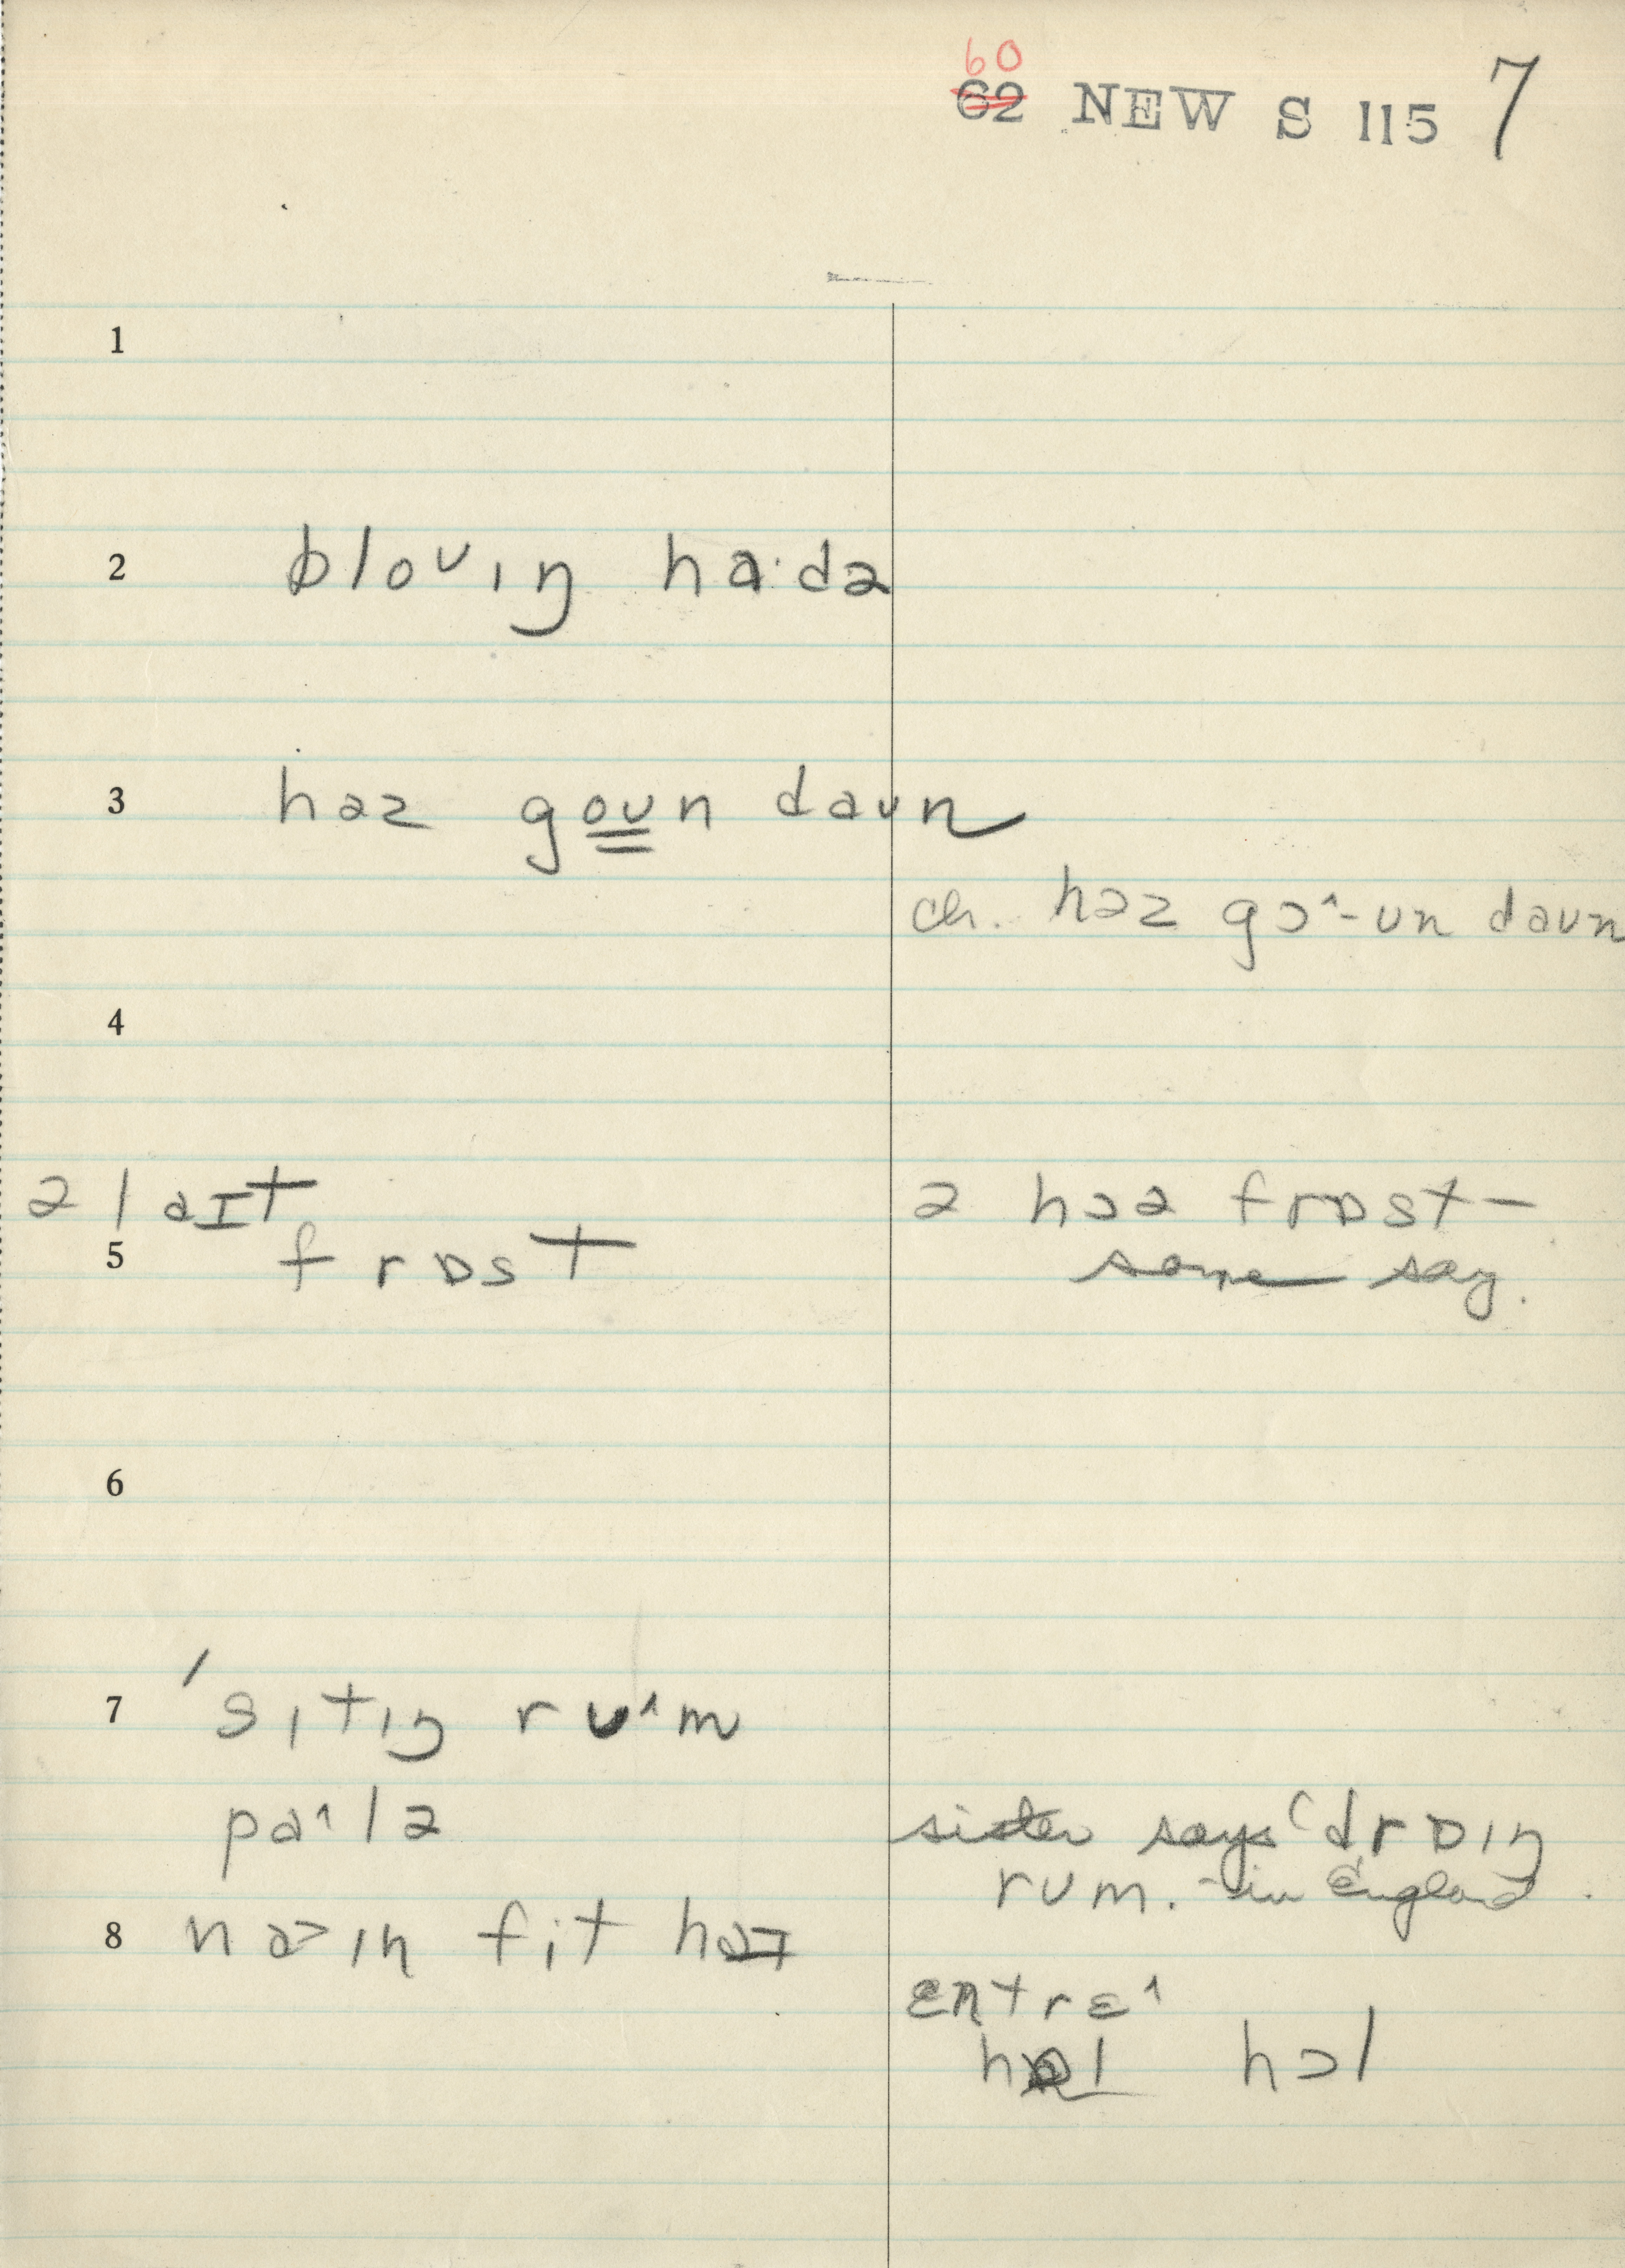 60
62 NEW S 115 7
1
2 bloʊɪŋ ha·də
3 həz goʊn daʊn
ch. həz gɔ˄-ʊn daʊn
4
ə laɪt
5 frɒst
ə hɔə frɒst –
some say.
6
7 ˈsɪtɪŋ rʊ˄m
pa˄lə
sister says drɒɪŋ
rʊm. – in England.
8
entrɛ˄
hɔl